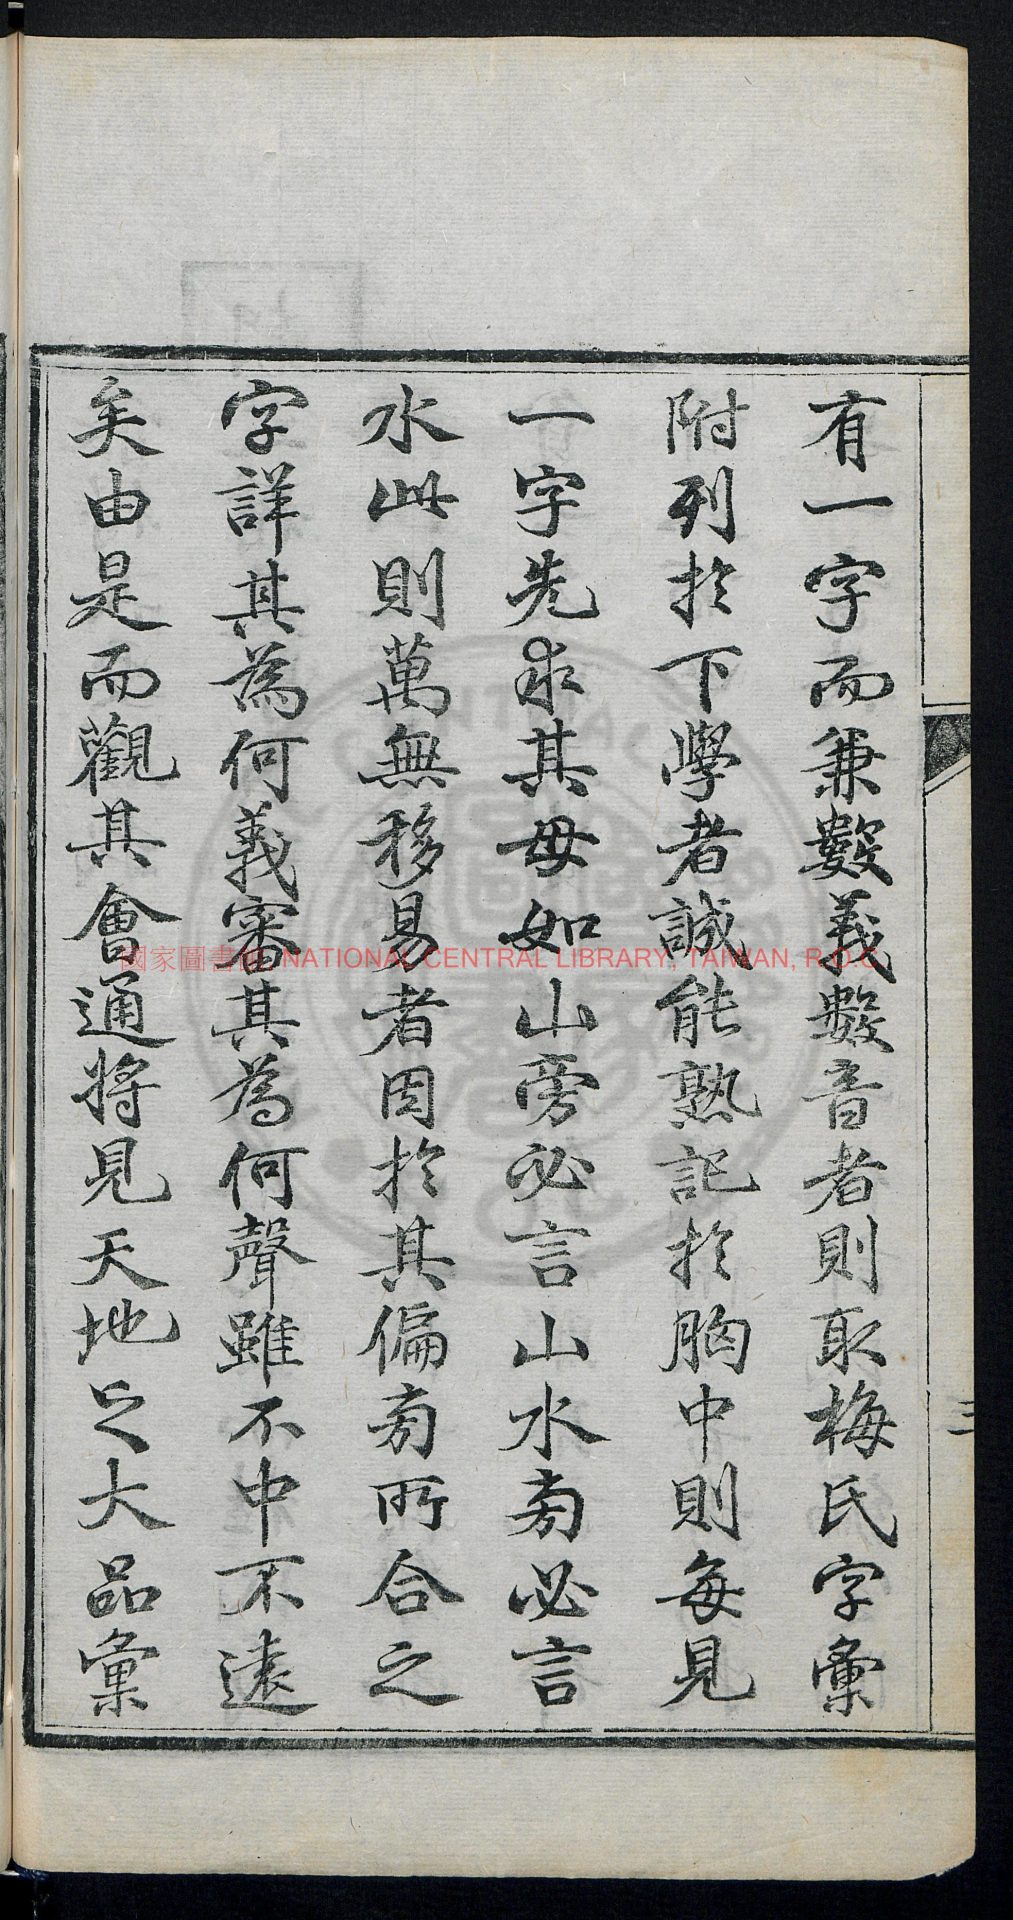 有一字而兼數義數音者則取梅氏字彙
附列於下學者誠能熟記於胸中則每見
一字先求其母如山旁必言山水旁必言
水此則萬無移易者因於其偏旁所合之
字詳其為何義審其為何聲雖不中不遠
矣由是而觀其會通將見天地之大品彙
三
國家圖書館 NATIONAL CENTRAL LIBRARY, TAIWAN, R.O.C